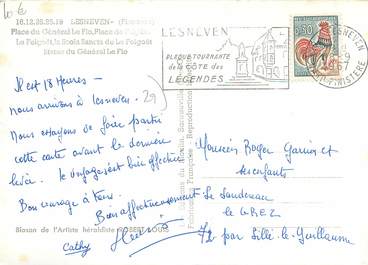 10 €
16.12.38.25.19 LESNEVEN- (Finistère)
Place du Général Le Flo, Place de
Le Folgoët, la Scala Sancta du Le Folgoët
Statue du Général Le Flo
LESNEVEN
PLAQUE TOURNANTE
de la CÔTE des
LÉGENDES
LESNEVEN
FINISTÈRE
0,30
Il est 18 Heures -
nous arrivons à Lesneven.
Nous essayons de faire partir
cette carte avant la dernière
levée. Le voyage s'est bien effectué
Bon courage à tous.
Bien affectueusement
Cathy
29
Blason de l'Artiste héraldiste ROBERT LOUIS
Fabrication Française - Reproduction
Monsieur Roger Garnier et
ses enfants
Le GREZ
72 par Sillé-le-Guillaume